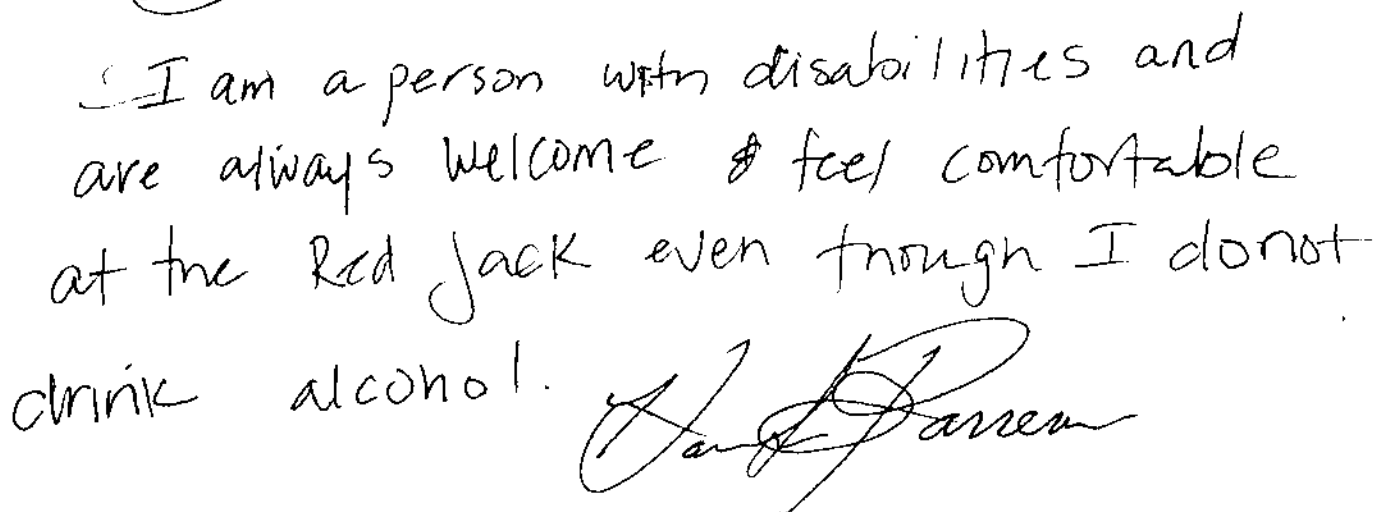 I am a person with disabilities and
are always welcome & feel comfortable
at the Red Jack even though I do not
drink alcohol.